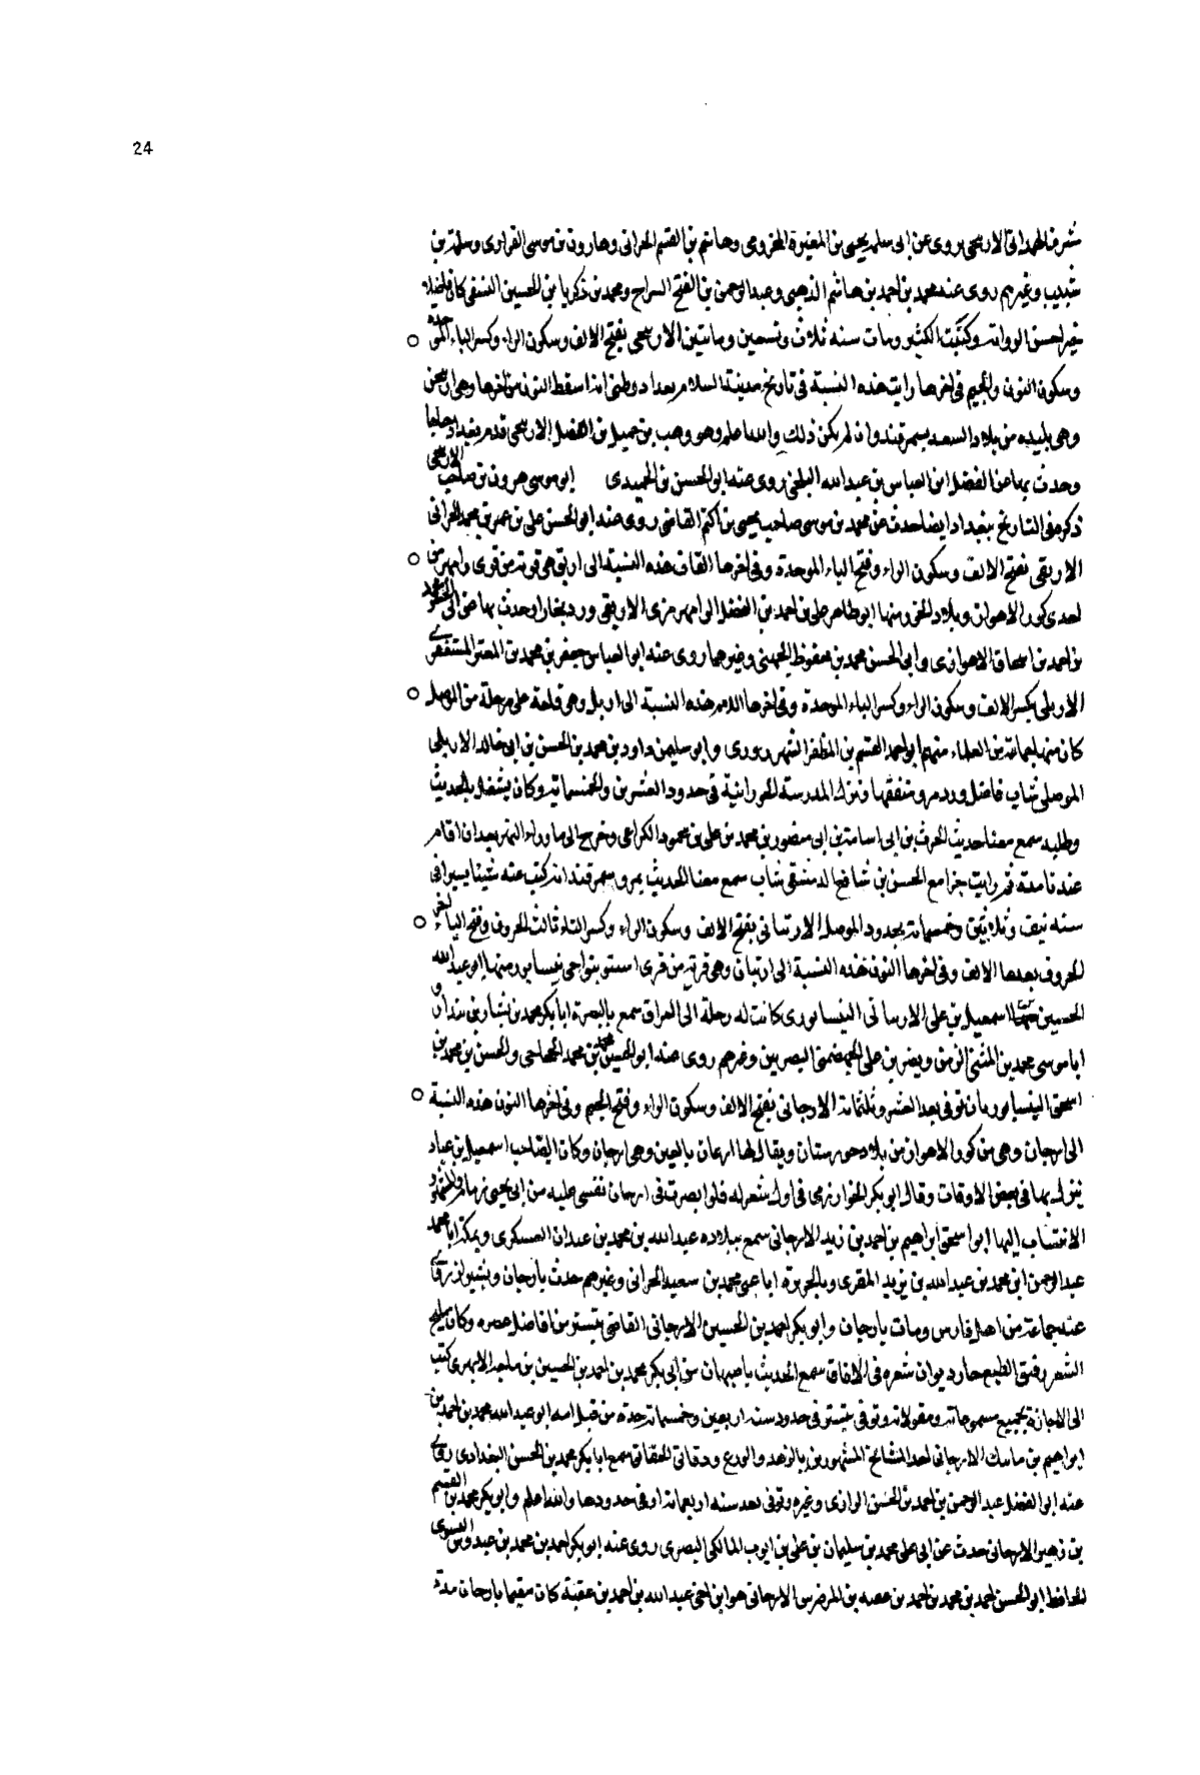 24
الهمدانى الاربنجى يروى عن ابى سلمه يحيى بن المغيرة المخزومى وهاشم بن القسم الحرانى وهارون بن موسى الفراوى وسلمة بن
شبيب وغيرهم روى عنه محمد بن احمد بن هاشم الذهبى وعبد الرحمن بن الفتح السراج ومحمد بن زكريا بن الحسين النسفى كان فاضلا
خيرا حسن الرواية وكتب الكثير ومات سنه ثلاث وتسعين ومايتين الاربنجى بفتح الالف وسكون الراء وكسر الباء
وسكون النون والجيم فى اخرها رايت هذه النسبة فى تاريخ مدينة السلام بغداد وظنى انه اسقط النون من اخرها وهى اربنجن
وهى بليده من بلاد السغد بسمرقند وان لم يكن ذلك والله اعلم وهو وهب بن جميل بن الفضل الاربنجى قدم بغداد حاجا
وحدث بها عن الفضل ابن العباس بن عبد الله البلخى روى عنه ابو الحسن بن الحميدى ابو موسى هرون بن صاحب الاربنجى
ذكره فى التاريخ ببغداد ايضا حدث عن محمد بن موسى صاحب يحيى بن اكثم القاضى روى عنه ابو الحسن على بن عمر بن محمد الحرانى
الاربقى بفتح الالف وسكون الراء وفتح الباء الموحدة وفى اخرها القاف هذه النسبة الى اربق وهى قرية من قرى رامهرمز
احدى كور الاهواز وبلاد الخوز منها ابو طاهر على بن احمد بن الفضل الرامهرمزى الاربقى ورد بخارا وحدث بها عن ابى
بن احمد بن اسحاق الاهوازى وابى الحسن محمد بن محفوظ الجهنى وغيرهما روى عنه ابو العباس جعفر بن محمد بن المعتز المستغفرى
الاربلى بكسر الالف وسكون الراء وكسر الباء الموحدة وفى اخرها اللام هذه النسبة الى اربل وهى قلعة على مرحلة من الموصل
كان منها جماعة من العلماء منهم ابو احمد القسم بن المظفر الشهرزورى وابو سليمن داود بن محمد بن الحسن بن ابى خالد الاربلى
الموصلى شاب فاضل ورد مرو متفقها ونزل المدرسة فى حدود العشرين والخمسماية وكان يشتغل بالحديث
وطلبه سمع معنا حديث الحرث بن ابى اسامة من ابى منصور بن محمد بن على بن محمود الكراعى وخرج الى ما وراء النهر بعد ان اقام
عندنا مدة ثم رايت جزا مع الحسن بن شافع الدمشقى شاب سمع معنا الحديث بمرو وسمرقند انه كتب عنه شيئا يسيرا فى
سنه نيف وثلاثين وخمسماية بحدود الموصل الارتيانى بفتح الالف وسكون الراء وكسر التاء ثالث الحروف وفتح الياء اخر
الحروف بعدها الالف وفى اخرها النون هذه النسبة الى ارتيان وهى قرية من قرى استو بنواحى نيسابور منها ابو عبد الله
الحسين بن اسمعيل بن على الارتيانى النيسابورى كانت له رحلة الى العراق سمع بالبصرة ابا بكر محمد بن بشار بن بندار و
ابا موسى محمد بن المثنى الزمن ونصر بن على الجهضمى البصريين وغيرهم روى عنه ابو الحسين بن محمد الحجاجى والحسن بن محمد بن
اسحق النيسابوريان توفى بعد العشر وثلثماية الارجانى بفتح الالف وسكون الراء وفتح الجيم وفى اخرها النون هذه النسبة
الى ارجان وهى من كور الاهواز من بلاد خوزستان ويقال لها ارغان بالغين وهى ارجان وكان الصاحب اسمعيل بن عباد
ينزل بها فى بعض الاوقات وقال ابو بكر الخوارزمى فى اول شعر له فلو ابصرت فى ارجان نفسى عليه من ابى يحيى زمام
الانتساب اليها ابو اسحق ابراهيم بن احمد بن زيد الارجانى سمع ببلاده عبد الله بن محمد بن عبدان العسكرى وبمكة ابا محمد
عبد الرحمن ابن محمد بن عبد الله بن يزيد المقرى وبالجزيرة ابا محمد بن سعيد الحرانى وغيرهم حدث بارجان وبشيراز روى
عنه جماعة من اهل فارس ومات بارجان وابو بكر احمد بن الحسين الارجانى القاضى بتستر من افاضل عصره وكان مليح
الشعر رقيق الطبع سار ديوان شعره فى الافاق سمع الحديث باصبهان من ابى بكر محمد بن احمد بن الحسين بن ماجه الابهرى كتب
الى الاجازة بجميع مسموعاته ومقولاته وتوفى بتستر فى حدود سنه اربعين وخمسماية جده من قبل امه ابو عبد الله محمد بن احمد بن
ابراهيم بن مابك الارجانى احد المشائخ المشهورين بالزهد والورع ودقائق الحقائق سمع ابا بكر محمد بن الحسن البغدادى روى
عنه ابو الفضل عبد الرحمن بن احمد بن الحسن الرازى وغيره وتوفى بعد سنه اربعماية او فى حدودها والله اعلم وابو بكر محمد بن القسم
بن زهير الارجانى حدث عن ابى على محمد بن سليمان بن على بن ايوب المالكى البصرى روى عنه ابو بكر احمد بن محمد بن عبدوس النسوى
الحافظ ابو الحسن احمد بن محمد بن احمد بن الارجانى هو ابن اخى عبد الله بن احمد بن عقبة كان مقيما بارجان مدة